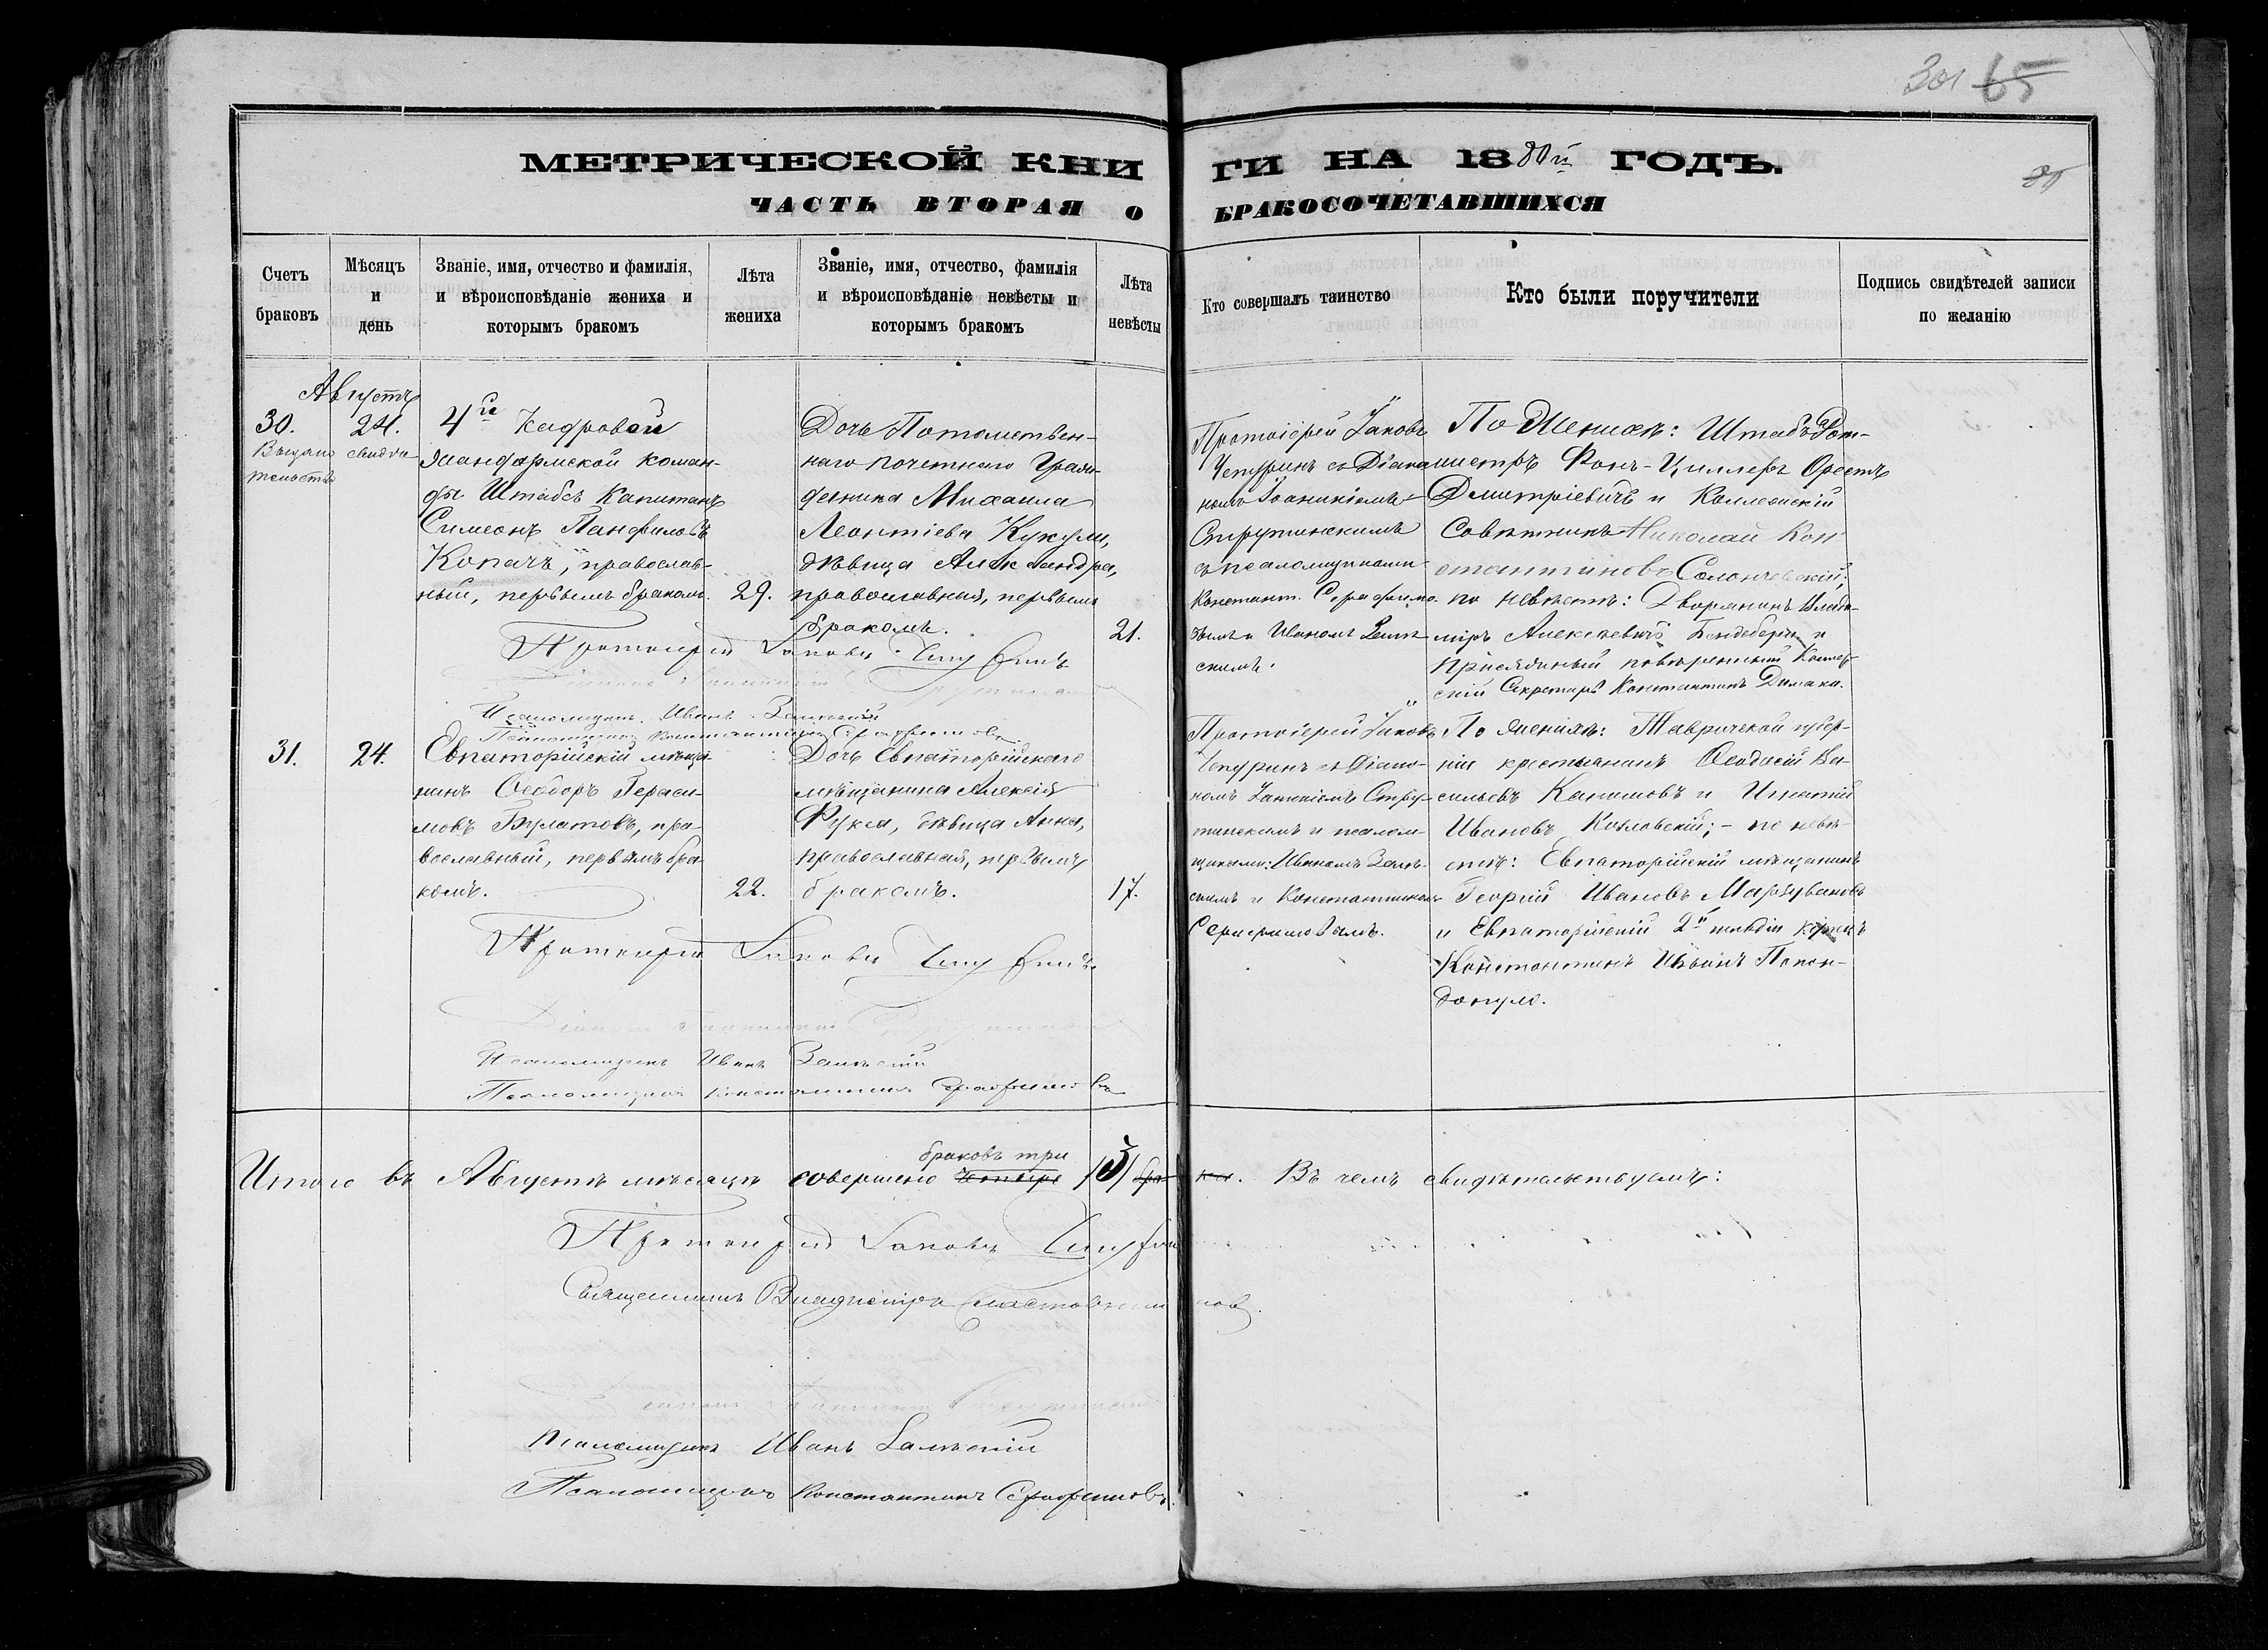 301 65
МЕТРИЧЕСКОЙ КНИ ГИ НА 1880й ГОДЪ.
ЧАСТЬ ВТОРАЯ О БРАКОСОЧЕТАВШИХСЯ
Счетъ браковъ
Мѣсяцъ и день
Званіе, имя, отчество и фамилія,
и вѣроисповѣданіе жениха и
которымъ бракомъ
Лѣта
жениха
Званіе, имя, отчество, фамилія
и вѣроисповѣданіе невѣсты и
которымъ бракомъ
Лѣта
невѣсты
Кто совершалъ таинство
Кто были поручители
Подпись свидѣтелей записи
по желанію
Августъ
30.
24.
Выдано свидѣ-
тельство
4й Кадровой
жандармской коман-
ды Штабсъ Капитанъ
Симеонъ Панфиловъ
Копачъ, православ-
ный, первымъ бракомъ.
29.
Дочь Потомствен-
наго почетнаго Граж-
данина Михаила
Леонтіева Кукули,
дѣвица Александра,
православная, первымъ
бракомъ.
21.
Протоіерей Іаковъ
Чепуринъ съ Діако-
номъ Іоанникіемъ
Струтинскимъ
съ псаломщиками
Констант. Серафимо-
вымъ и Иваномъ
скимъ.
По Женихѣ: Штабъ Рот-
мистръ Фонъ-Циллеръ Орестъ
Дмитріевичъ и Коллежскій
Совѣтникъ Николай Кон
стантиновъ
по невѣстѣ: Дворянинъ Влади-
міръ Алексѣевичъ Бендебери и
присяжный повѣренный Коллеж-
скій Секретарь Константинъ Димака.
Протоіерей Іаковъ Чепуринъ
Псаломщикъ Иванъ
Псаломщикъ Константинъ Серафимовъ
31.
24.
Евпаторійскій мѣща-
нинъ Ѳеодоръ Гераси-
мовъ Булатовъ, пра-
вославный, первымъ бра-
комъ.
22.
Дочь Евпаторійскаго
мѣщанина Алексія
Фукса, дѣвица Анна,
православная, первымъ
бракомъ.
17.
Протоіерей Іаковъ
Чепуринъ съ Діако-
номъ Стру-
тинскимъ и псалом-
щиками: Иваномъ
скимъ и Константиномъ
Серафимовымъ.
По женихѣ: Таврической губер-
ніи крестьянинъ Ѳеодосій Ва-
сильевъ Канишовъ и Игнатій
Ивановъ Козловскій; - по невѣ-
стѣ: Евпаторійскій мѣщанинъ
Георгій Ивановъ
и Евпаторійскій 2й гильдіи купецъ
Константинъ Ивановъ Папан-
допуло.
Протоіерей Іаковъ Чепуринъ
Псаломщикъ Иванъ
Псаломщикъ Константинъ Серафимовъ
браковъ три
Итого въ Августѣ мѣсяцѣ совершено четыре /3/ бра ка. Въ чемъ свидѣтельствуемъ:
Протоіерей Іаковъ Чепуринъ
Священникъ Владиміръ
Псаломщикъ Иванъ
Псаломщикъ Константинъ Серафимовъ.